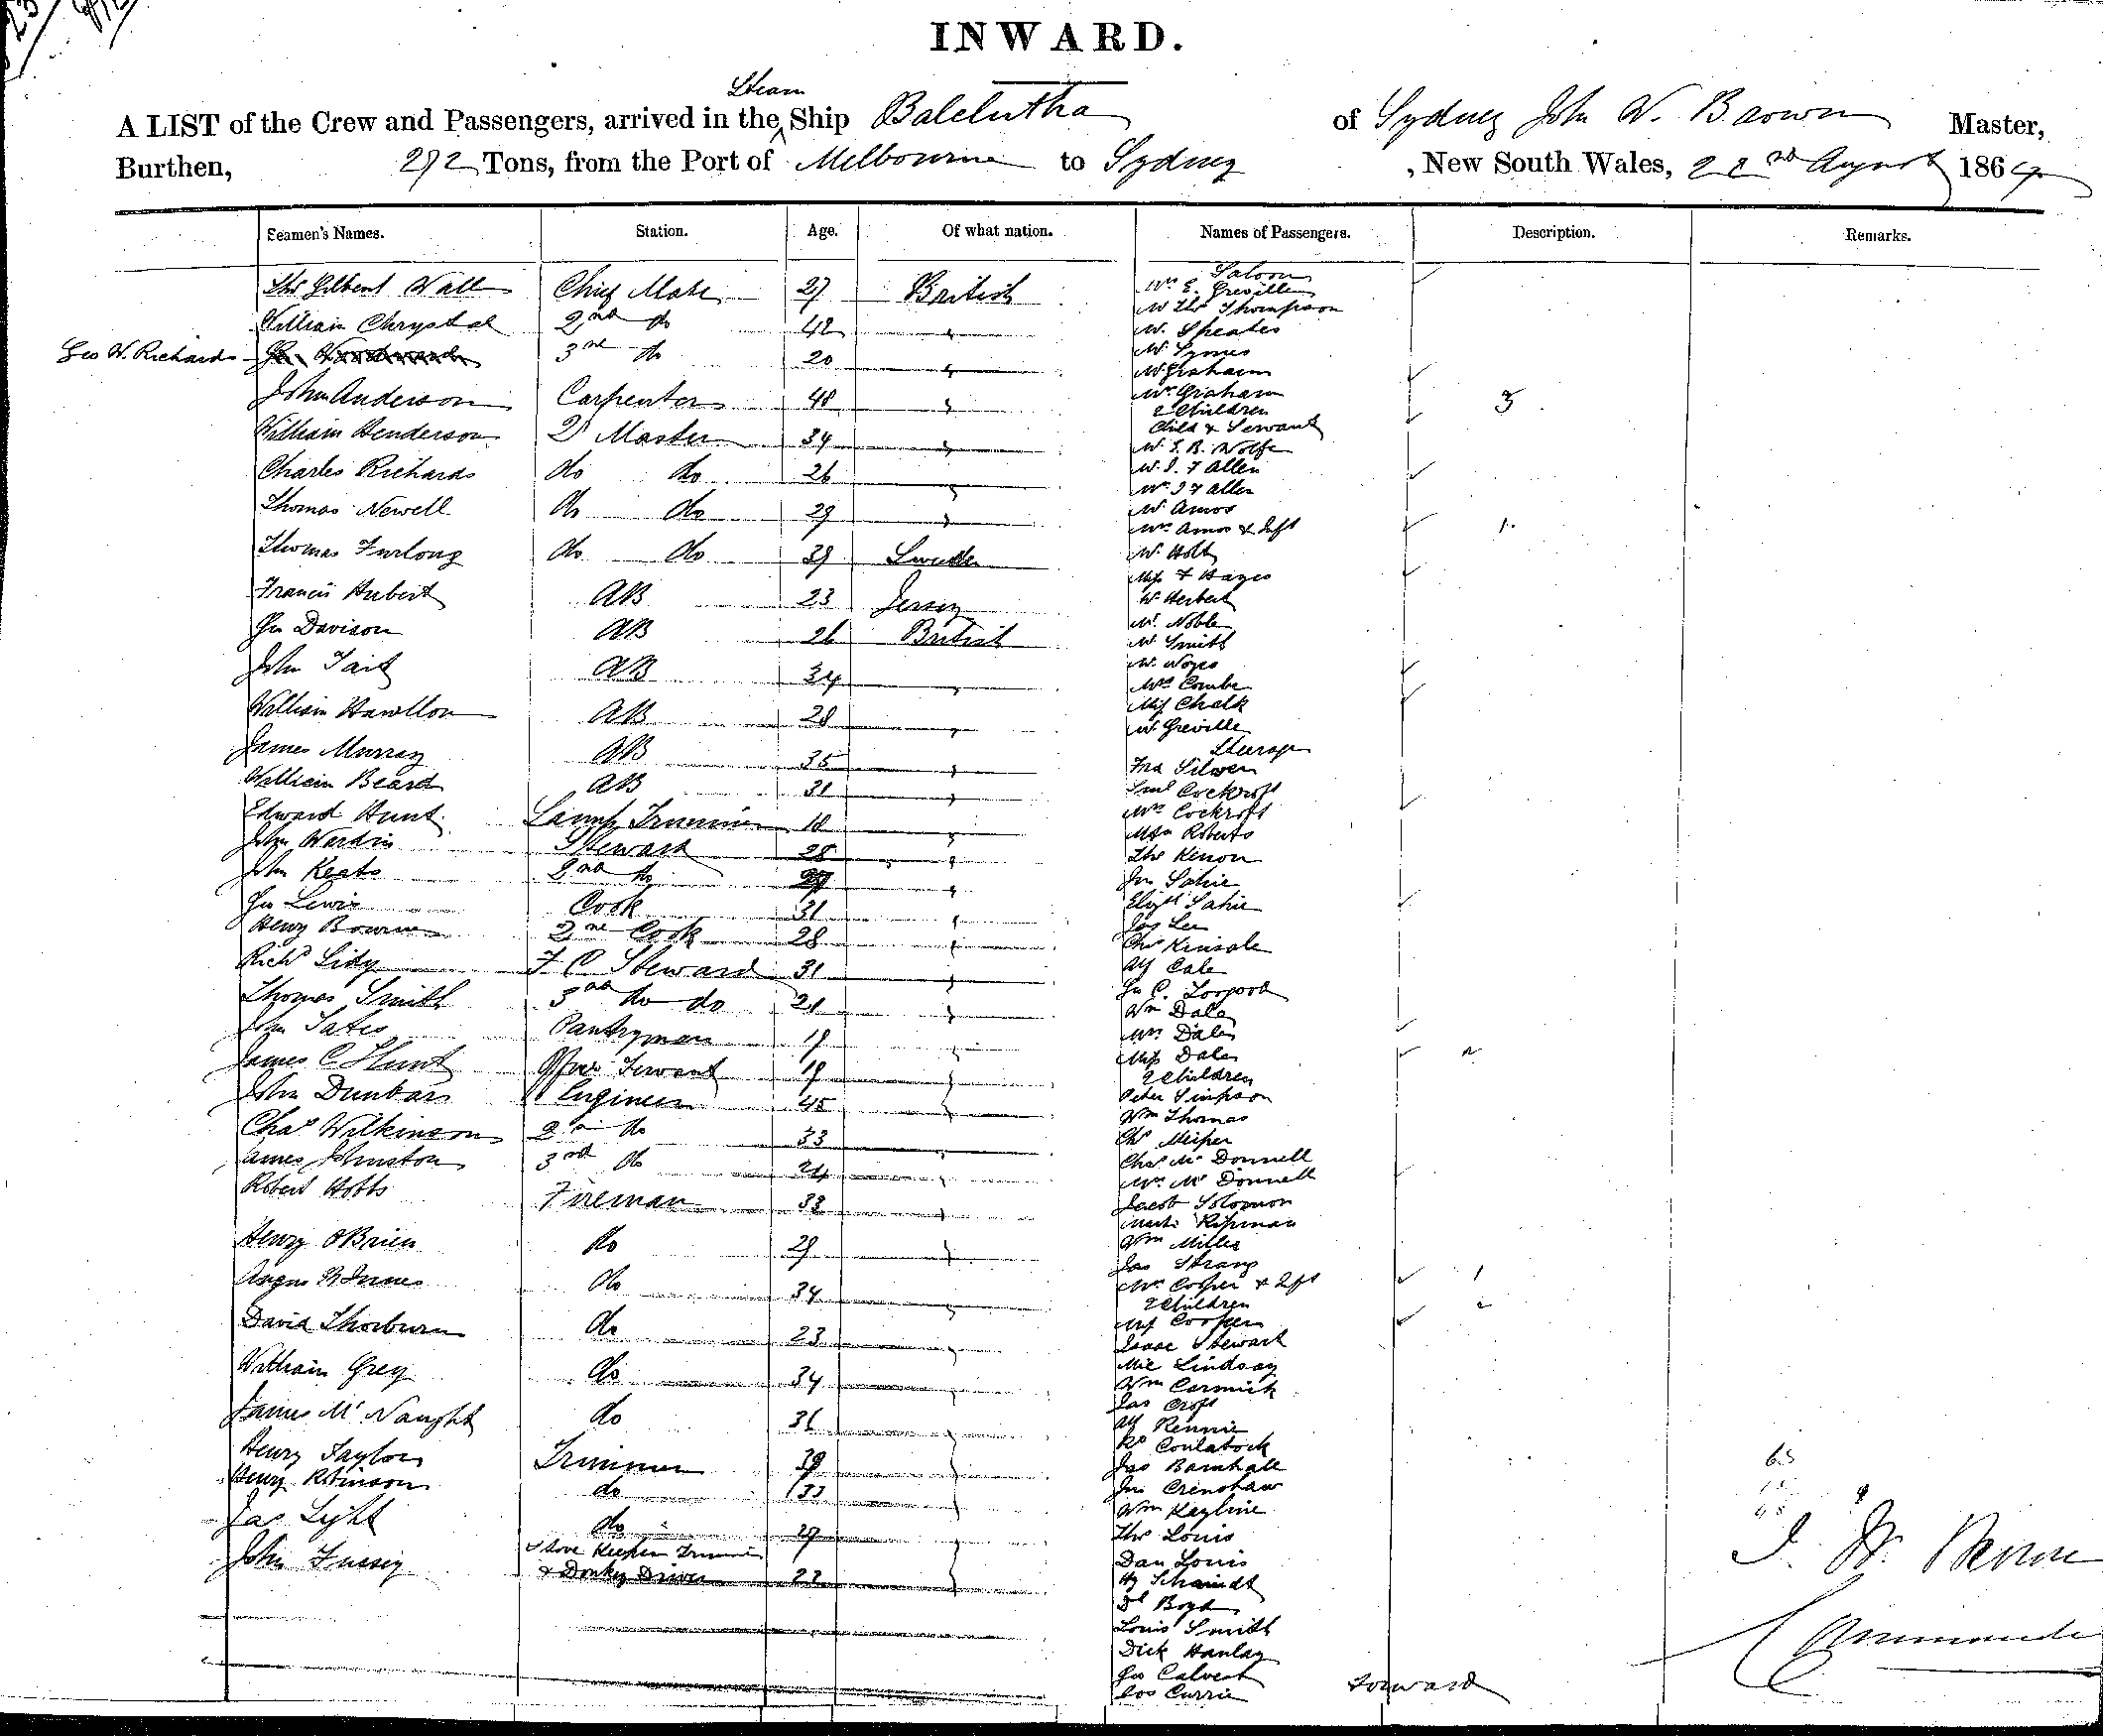 INWARD.
A LIST of the Crew and Passengers, arrived in the Steam Ship Balclutha of Sydney John W. Brown Master,
Burthen, 272 Tons, from the Port of Melbourne to Sydney, New South Wales, 22nd August 1864
Seamen's Names. Station. Age. Of what nation. Names of Passengers. Description. Remarks.
Thos Gilbert Wall Chief Mate 27 British
William Chrystal 2nd do 42 "
Geo W. Richards 3rd do 20 "
John Anderson Carpenter 48 "
William Henderson Q Master 34 "
Charles Richards do do 26 "
Thomas Newell do do 29 "
Thomas Furlong do do 39
Francis Hubert AB 23 Jersey
Geo Davison AB 26 British
John Tait AB 34 "
William Hamilton AB 28 "
James Murray AB 35 "
William Beard AB 31 "
Edward Hunt Lamp Trimmer 18 "
John Wardin Steward 28 "
John Keats 2nd do "
Geo Lewis Cook 31 "
Henry Bourne 2nd Cook 28 "
Richd Lidy F C Steward 31 "
Thomas Smith 3rd do do 21 "
John Yates Pantryman 19 "
James C Hunt Servant 19 "
John Dunbar 1 Engineer 45 "
Chas Wilkinson 2nd do 33 "
James Johnston 3rd do 24 "
Robert Hobbs Fireman 33 "
Henry O'Brien do 29 "
Angus do 34 "
David Thorburn do 23 "
William Grey do 34 "
James McNaught do 36 "
Henry Taylor Trimmer 39 "
Henry Robinson do 33 "
Jas Light do 29 "
John Store Keeper Trimmer
& Donkey Driver 22 "
Saloon
Mr E. Greville
Mr Thos Thompson
Mr Speates
Mr Symes
Mr Graham
Mrs Graham
2 Children 3
Child & Servant
Mr Wolfe
Mr J. F Allen
Mrs J F Allen
Mr Amos
Mrs Amos & Inft 1
Mr Holt
Miss F Hayes
Mr Herbert
Mr Noble
Mr Smith
Mr Noyes
Mrs Combe
Miss Chalk
Mr Greville
Steerage
Fra Silver
Saml Cockroft
Mrs Cockroft
Mrs Roberts
Thos Kenon
Jno Sahie
Elizth Sahie
Jas Lee
Chas Kinsale
Alf Cale
Wm Dale
Mrs Dale
Miss Dale
2 Children 2
Peter Simpson
Wm Thomas
Chas McDonnell
Mrs McDonnell
Jacob Solomon
Wm Miller
Jas Strang
Mrs Cooper & Inft 1
2 Children 2
Miss Cooper
Isaac Stewart
Mic Lindsay
Wm Cormick
Jas Croft
Alf Rennie
Jas Barnhall
Jno Crenshaw
Wm Kayline
Thos Louis
Dan Louis
Hy Schmidt
Dl Boyd
Louis Smith
Dick Hanlay
Geo Calvert
Currie Forward
63
J. W. Brown
Commander